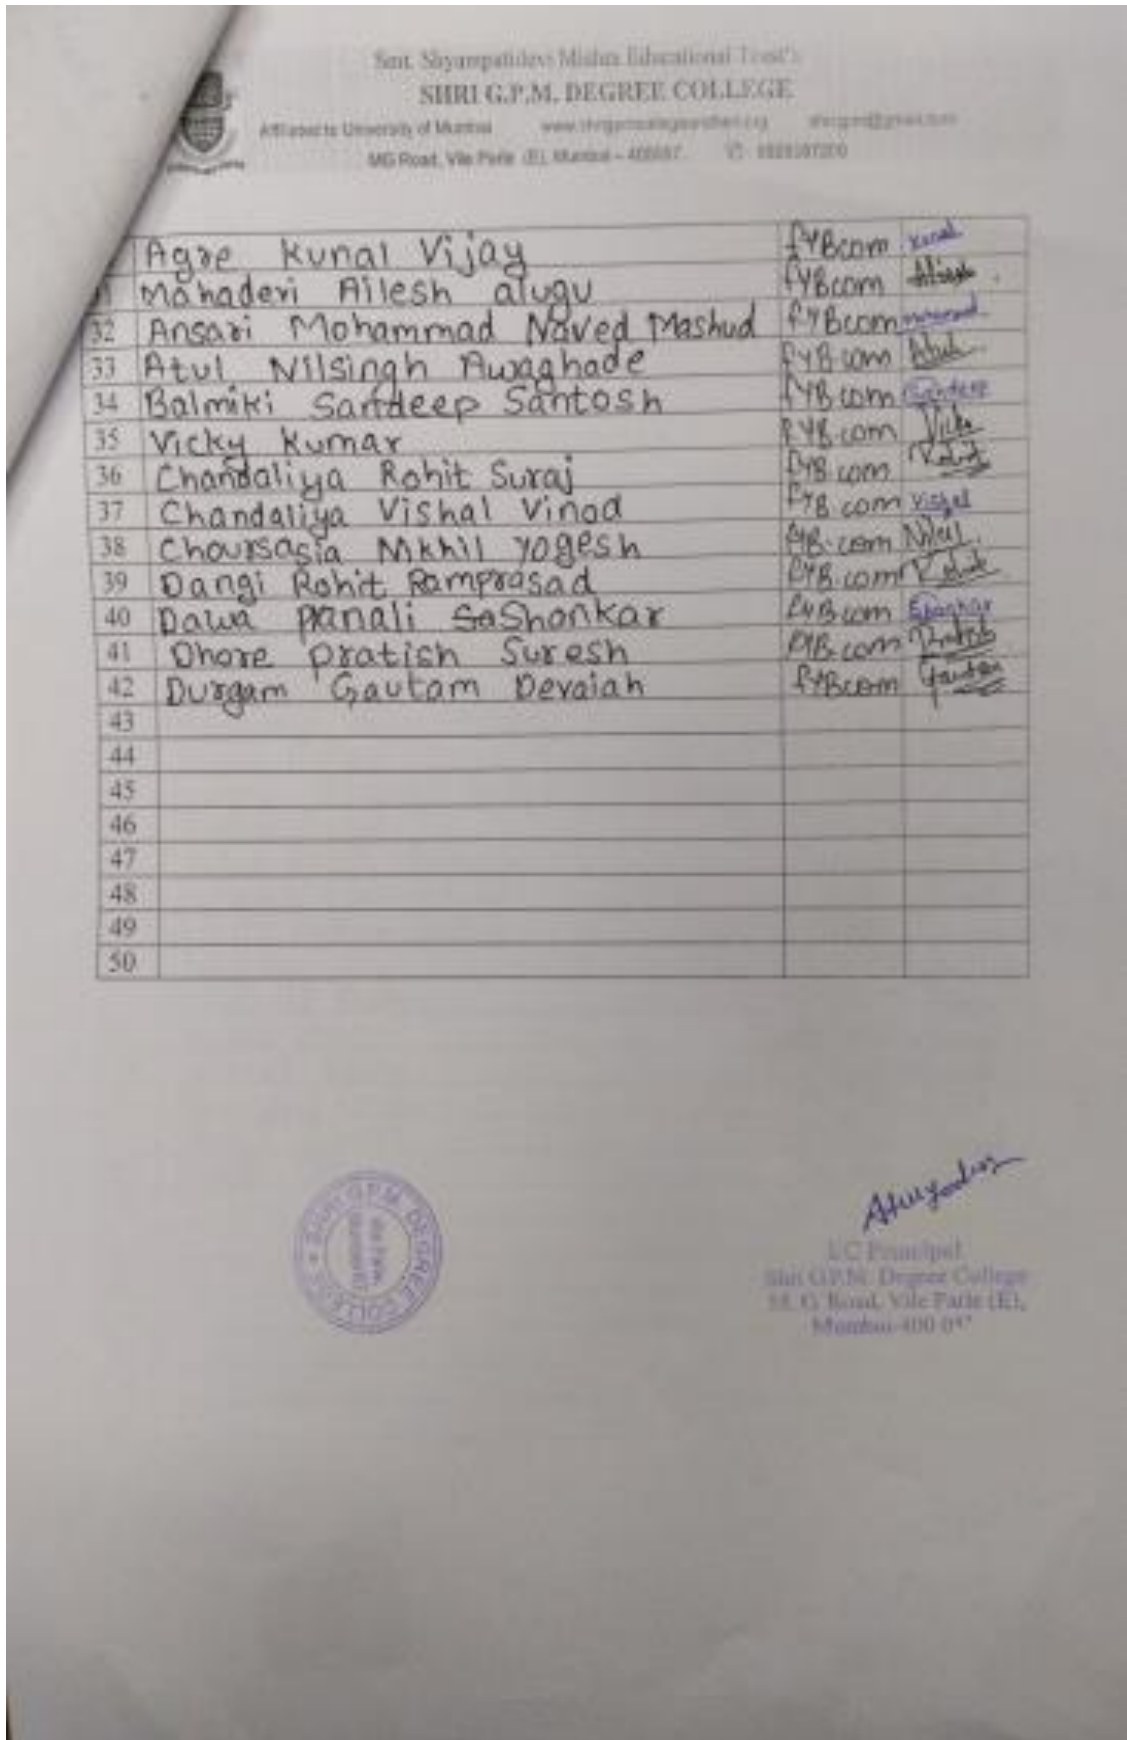 Smt. Shyampatidevi Mishra Educational Trust's
SHRI G.P.M. DEGREE COLLEGE
Affiliated to University of Mumbai
MG Road, Vile Parle (E), Mumbai – 400057.
Agre Kunal Vijay fyBcom Kunal
Mahaderi Ailesh alugu fyBcom Ailesh
32 Ansari Mohammad Naved Mashud fyBcom
33 Atul Nilsingh Awaghade fyB.com Atul
34 Balmiki Sandeep Santosh fyB com Sandeep
35 Vicky Kumar fyB.com Vicky
36 Chandaliya Rohit Suraj fyB.com Rohit
37 Chandaliya Vishal Vinod fyB com Vishal
38 Choursasia Mkhil Yogesh fyB.com Nikhil
39 Dangi Rohit Ramprasad fyB.com Rohit
40 Dawa Panali Shonkar fyBcom
41 Dhore pratish Suresh fyB.com Pratish
42 Durgam Gautam Devaiah fyBcom Gautam
43
44
45
46
47
48
49
50
SHRI G.P.M. DEGREE COLLEGE
I/C Principal
Shri G.P.M. Degree College
M. G. Road, Vile Parle (E),
Mumbai-400 057